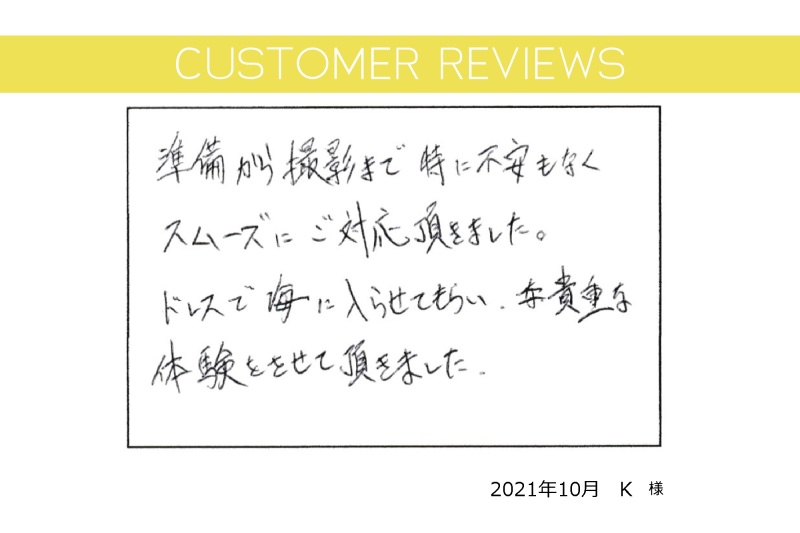 CUSTOMER REVIEWS
準備から撮影まで特に不安もなく
スムーズにご対応頂きました。
ドレスで海に入らせてもらい、貴重な
体験をさせて頂きました。
2021年10月 K 様